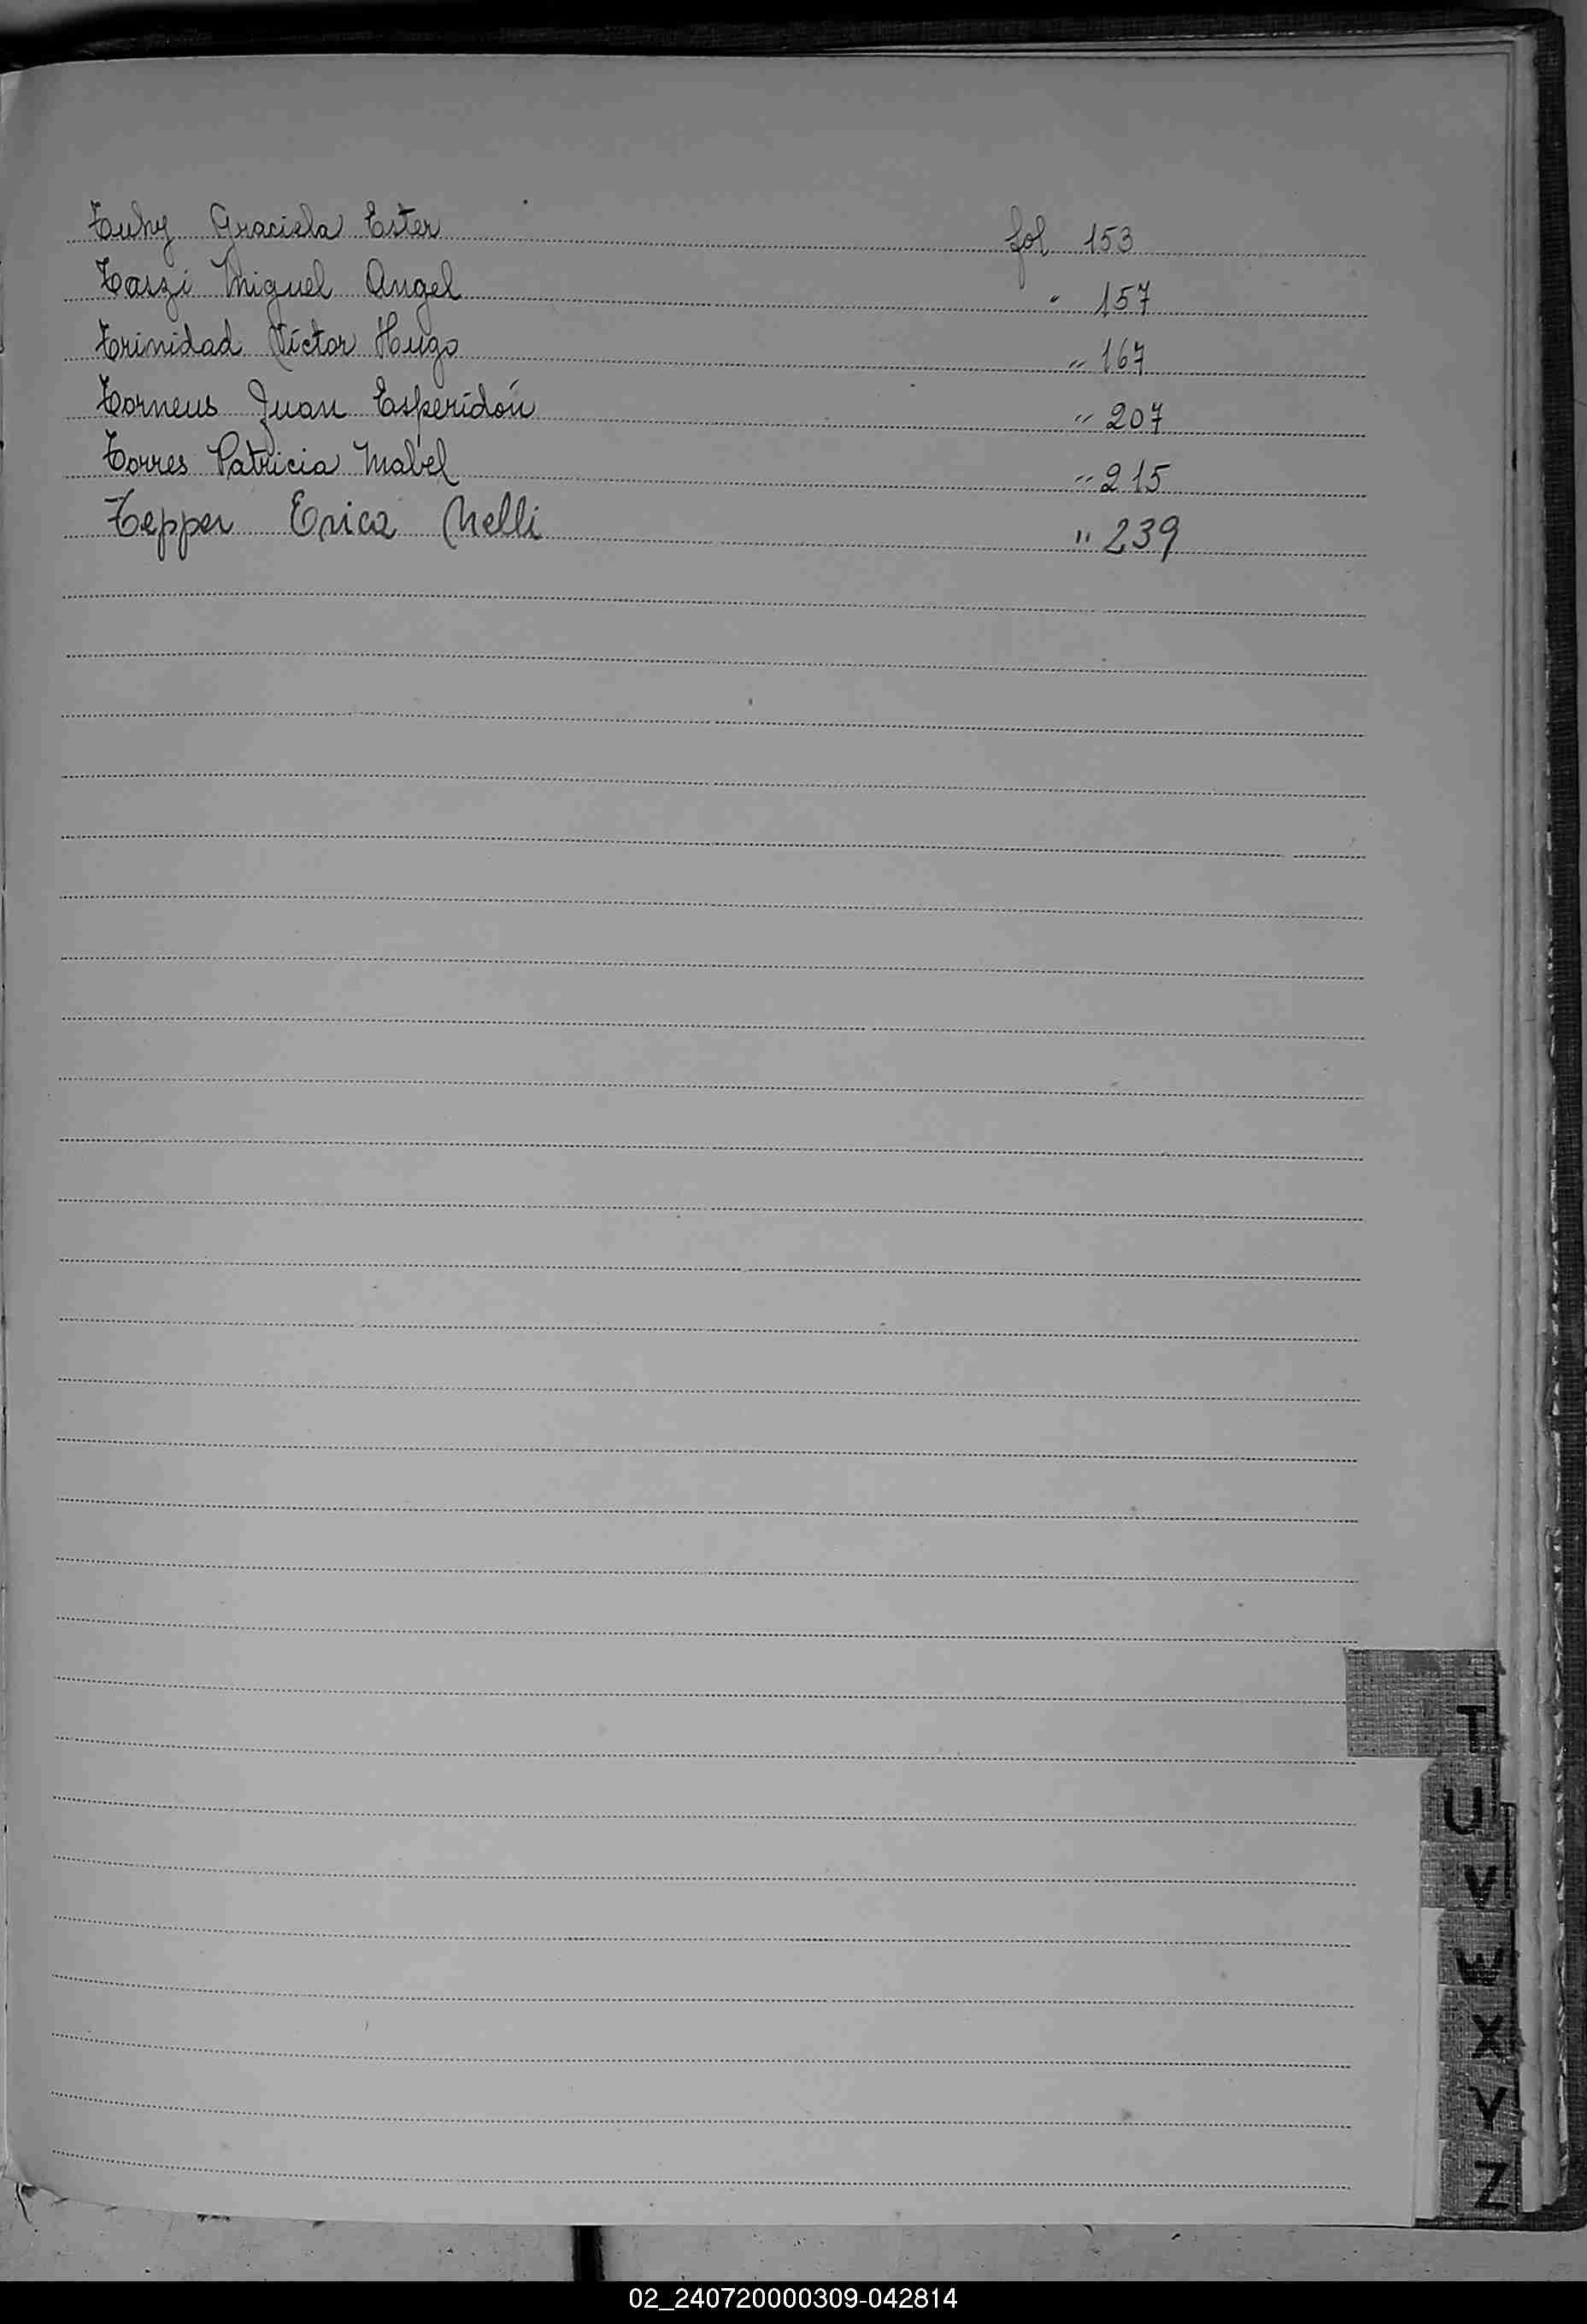 Tuhy Graciela Ester fol 153
Taszi Miguel Angel " 157
Trinidad Víctor Hugo " 167
Torneus Juan Esperidón " 207
Torres Patricia Mabel " 215
Tepper Erica Nelli " 239
T
U
V
W
X
Y
Z
02_240720000309-042814